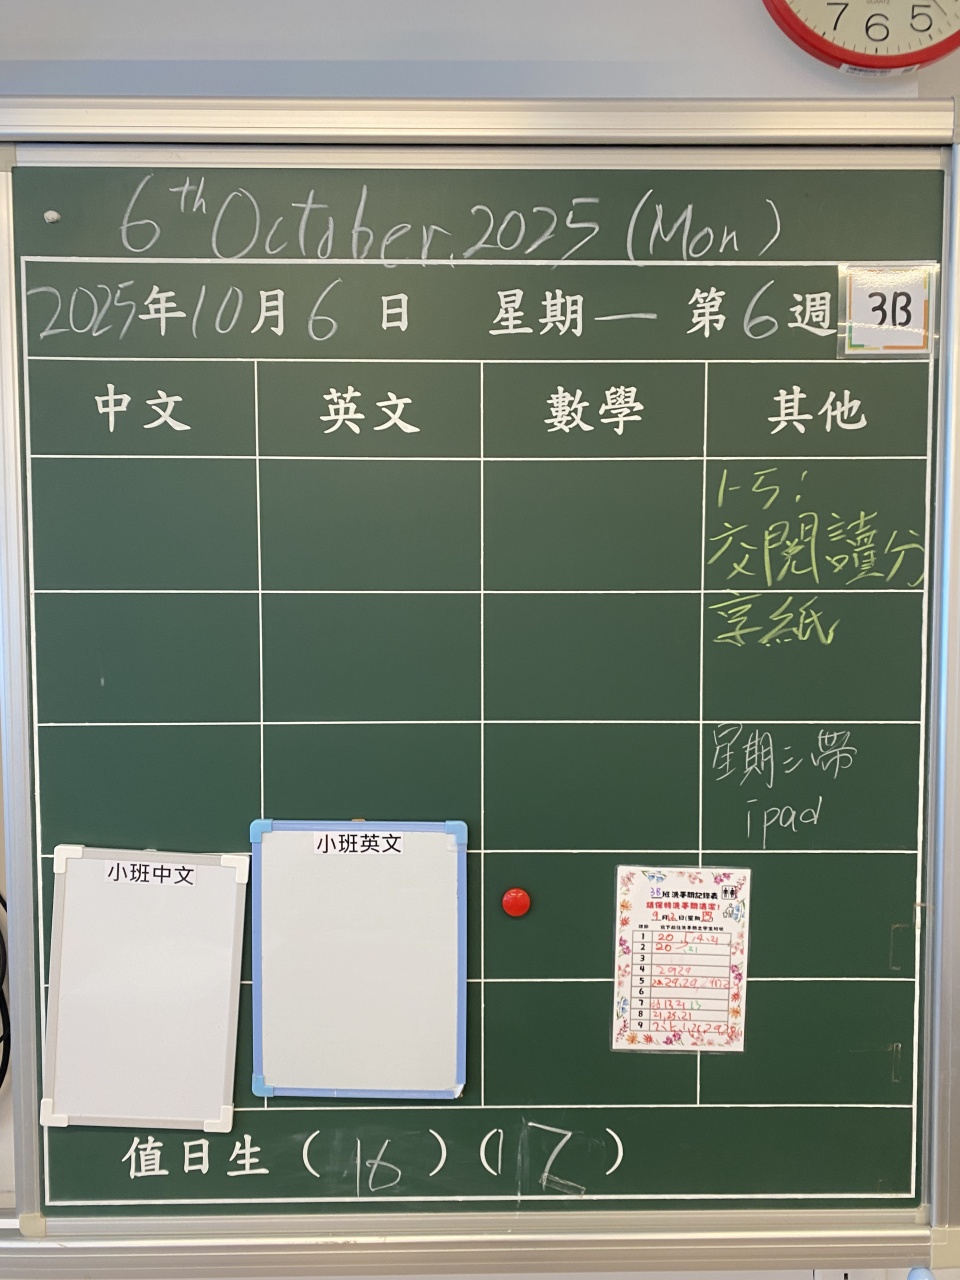 7 6 5
6th October. 2025 (Mon)
2025年10月6日 星期一 第6週
3B
中文 英文 數學 其他
交閱讀分
享紙
星期三帶
ipad
小班中文
小班英文
3B班洗手間記錄表
請保持洗手間清潔!
1 20
2 20
3
4 2929
5
6
7
8 21,25,21
9
值日生 (16) (17)